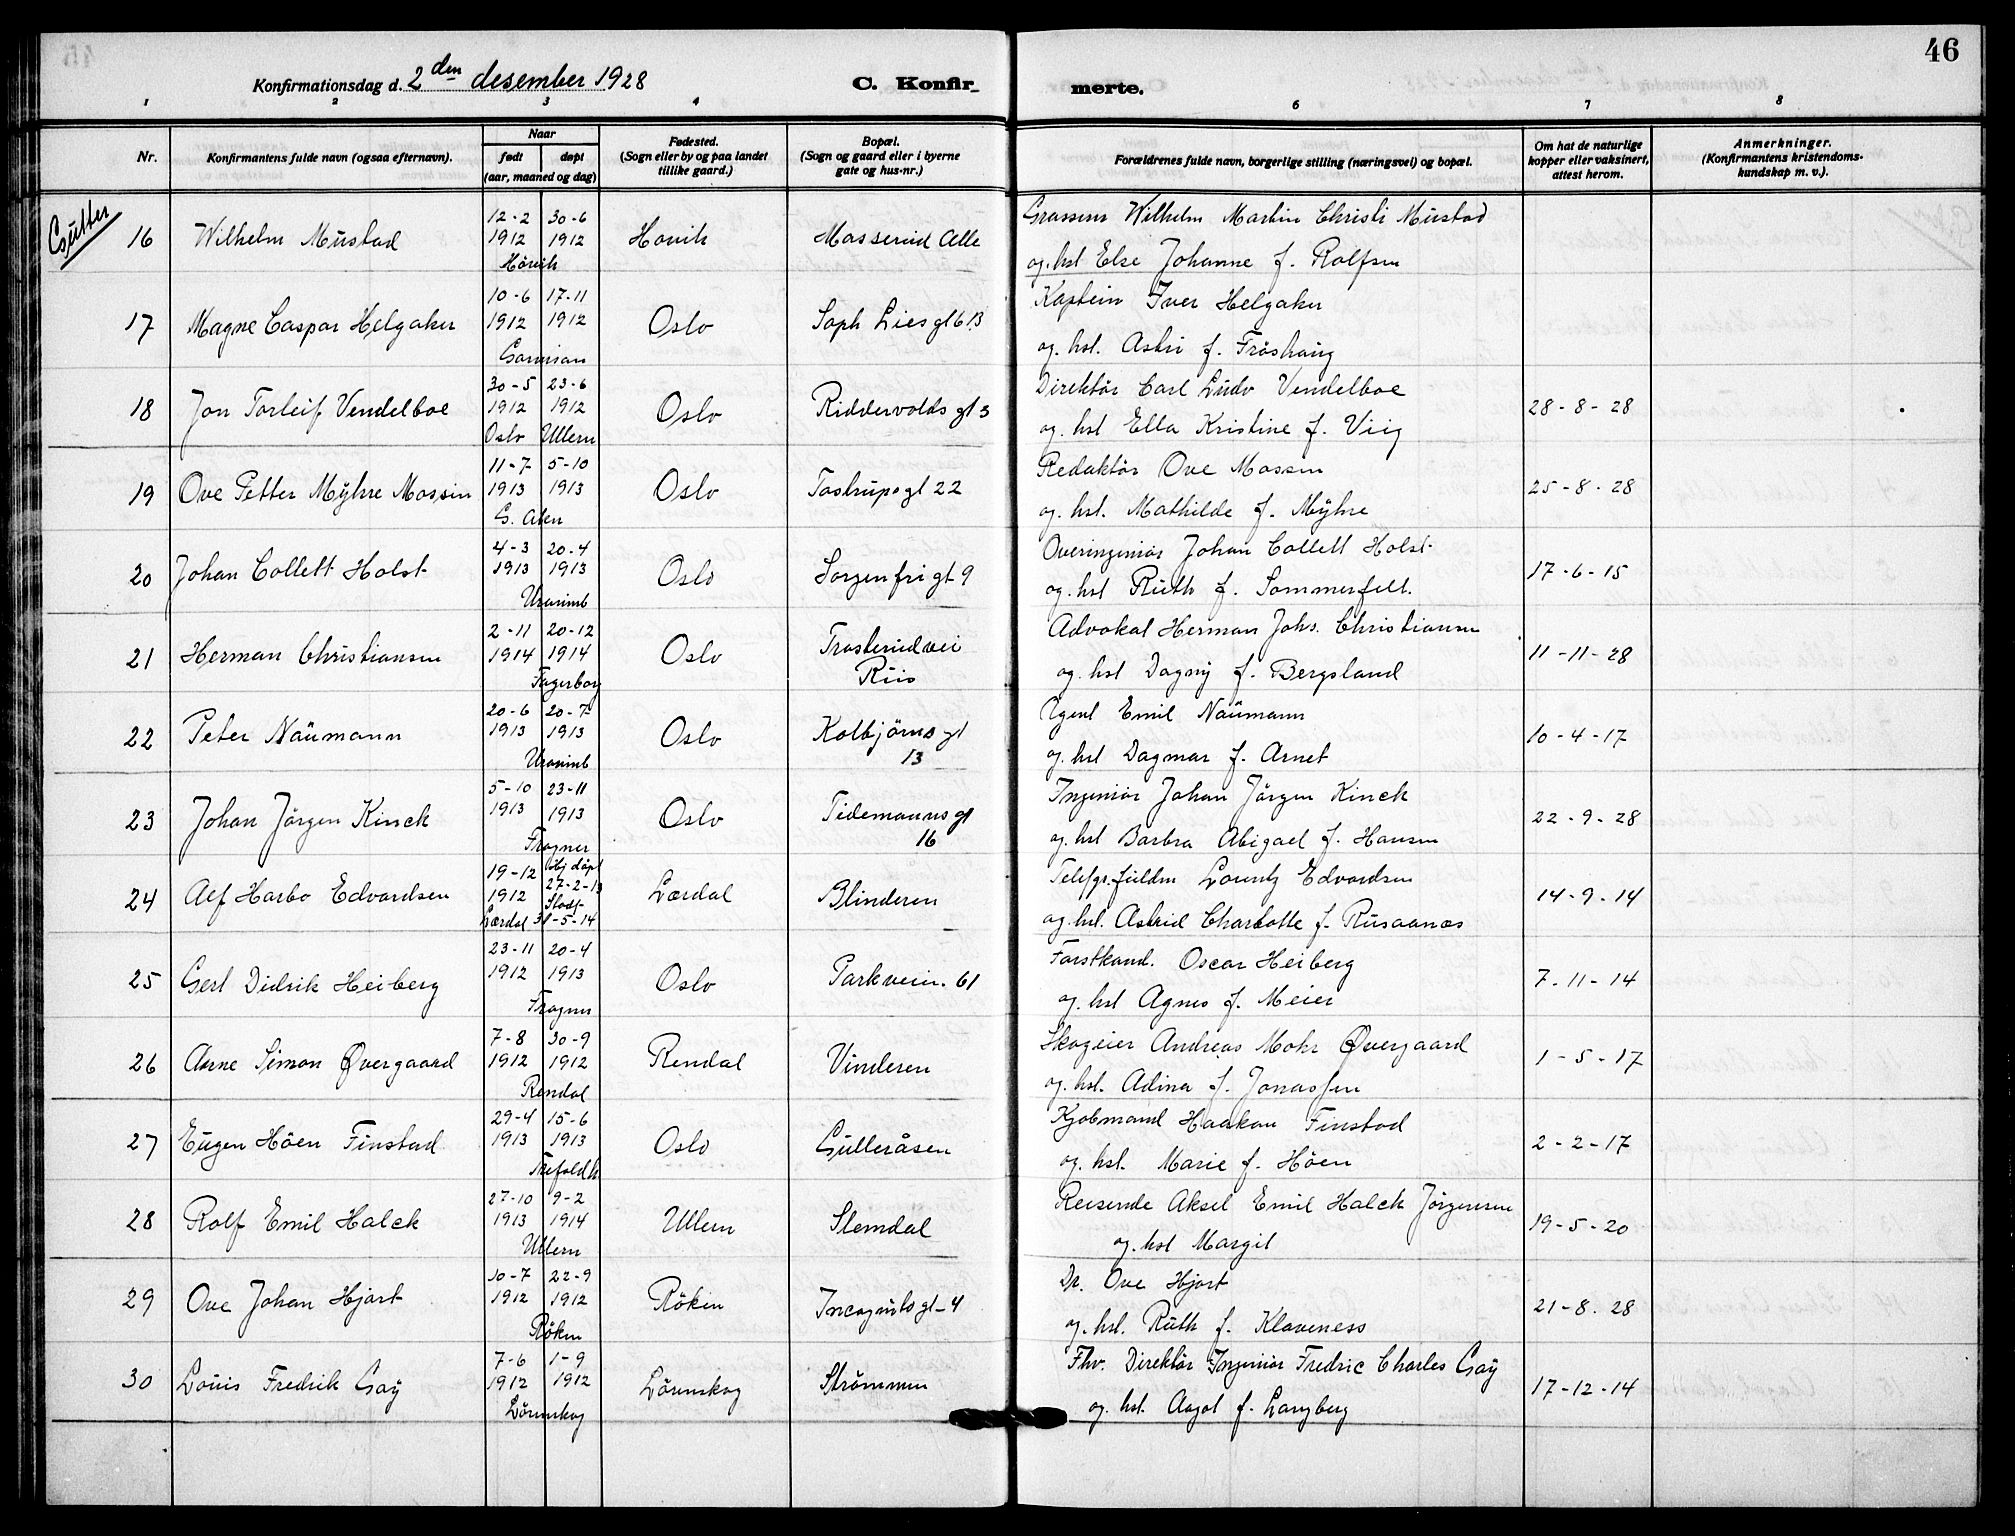 46
Konfirmationsdag d. 2 den desember 1928
C. Konfirmerte.
1 2 3 4 5 6 7 8
Nr.
Konfirmantens fulde navn (ogsaa efternavn).
Naar
født døpt
(aar, maaned og dag)
Fødested.
(Sogn eller by og paa landet
tillike gaard.)
Bopæl.
(Sogn og gaard eller i byerne
gate og hus-nr.)
Forældrenes fulde navn, borgerlige stilling (næringsvei) og bopæl.
Om hat de naturlige
kopper eller vaksinert,
attest herom.
Anmerkninger.
(Konfirmantens kristendoms-
kundskap m. v.).
Gutter
16 Wilhelm Mustad 12-2 1912 30-6 1912 Hövik Hövik Masserud Alle Grosserer Wilhelm Martin Christi Mustad
og hst Else Johanne f. Rolfsen
17 Magne Caspar Helgaker 10-6 1912 17-11 1912 Garnison Oslo Soph Lies gt 6 B Kaptein Iver Helgaker
og. hst. Astri f. Fröshaug
18 Jon Torleif Vendelboe 30-5 1912 23-6 1912 Oslo Ullern Oslo Riddervolds gt 3 Direktör Carl Ludv Vendelboe 28-8-28
og. hst Ella Kristine f. Viig
19 Ove Petter Myhre Mossin 11-7 1913 5-10 1913 G. Aker Oslo Tostrups gt 22 Redaktör Ove Mossin 25-8-28
og. hst. Mathilde f. Myhre
20 Johan Collett Holst 4-3 1913 20-4 1913 Uranienb Oslo Sorgenfri gt 9 Overingeniör Johan Collett Holst 17-6-15
og. hst Ruth f. Sommerfelt.
21 Herman Christiansen 2-11 1914 20-12 1914 Fagerborg Oslo Trosterudvei
Riis Advokat Herman Johs. Christiansen 11-11-28
og. hst Dagny f. Bergsland
22 Peter Naumann 20-6 1913 20-7 1913 Uranienb Oslo Kolbjörns gt
13 Agent Emil Naumann 10-4-17
og. hst Dagmar f. Arnet
23 Johan Jörgen Kinck 5-10 1913 23-11 1913 Frogner Oslo Tidemanns gt
16 Ingeniör Johan Jörgen Kinck 22-9-28
og. hst Barbra Abigael f. Hansen
24 Alf Harbo Edvardsen 19-12 1912 hj döpt 27-2-13 Stadf. Lærdal 31-5-14 Lærdal Blinderen Telefgr.fuldm Lorentz Edvardsen 14-9-14
og. hst. Astrid Charlotte f. Rusaanæs
25 Gert Didrik Heiberg 23-11 1912 20-4 1913 Frogner Oslo Parkveien. 61 Forstkand. Oscar Heiberg 7-11-14
og. hst Agnes f. Meier
26 Arne Simon Øvergaard 7-8 1912 30-9 1912 Rendal Rendal Vinderen Skogeier Andreas Mohr Øvergaard 1-5-17
og. hst. Adina f. Jonassen
27 Eugen Höen Finstad 29-4 1913 15-6 1913 Trefoldh Oslo Gulleråsen Kjobmand Haakon Finstad 2-2-17
og. hst. Marie f. Höen
28 Rolf Emil Halck 27-10 1913 9-2 1914 Ullern Ullern Slemdal Reisende Aksel Emil Halck Jörgensen 19-5-20
og. hst Margit
29 Ove Johan Hjort 10-7 1912 22-9 1912 Röken Röken Incognito gt-4 Dr. Ove Hjort 21-8.28
og. hst. Ruth f. Klaveness
30 Louis Fredrik Gay 7-6 1912 1-9 1912 Lörenskog Lörenskog Strömmen Fhv. Direktör Ingeniör Fredric Charles Gay 17-12-14
og. hst. Aagot f. Langberg